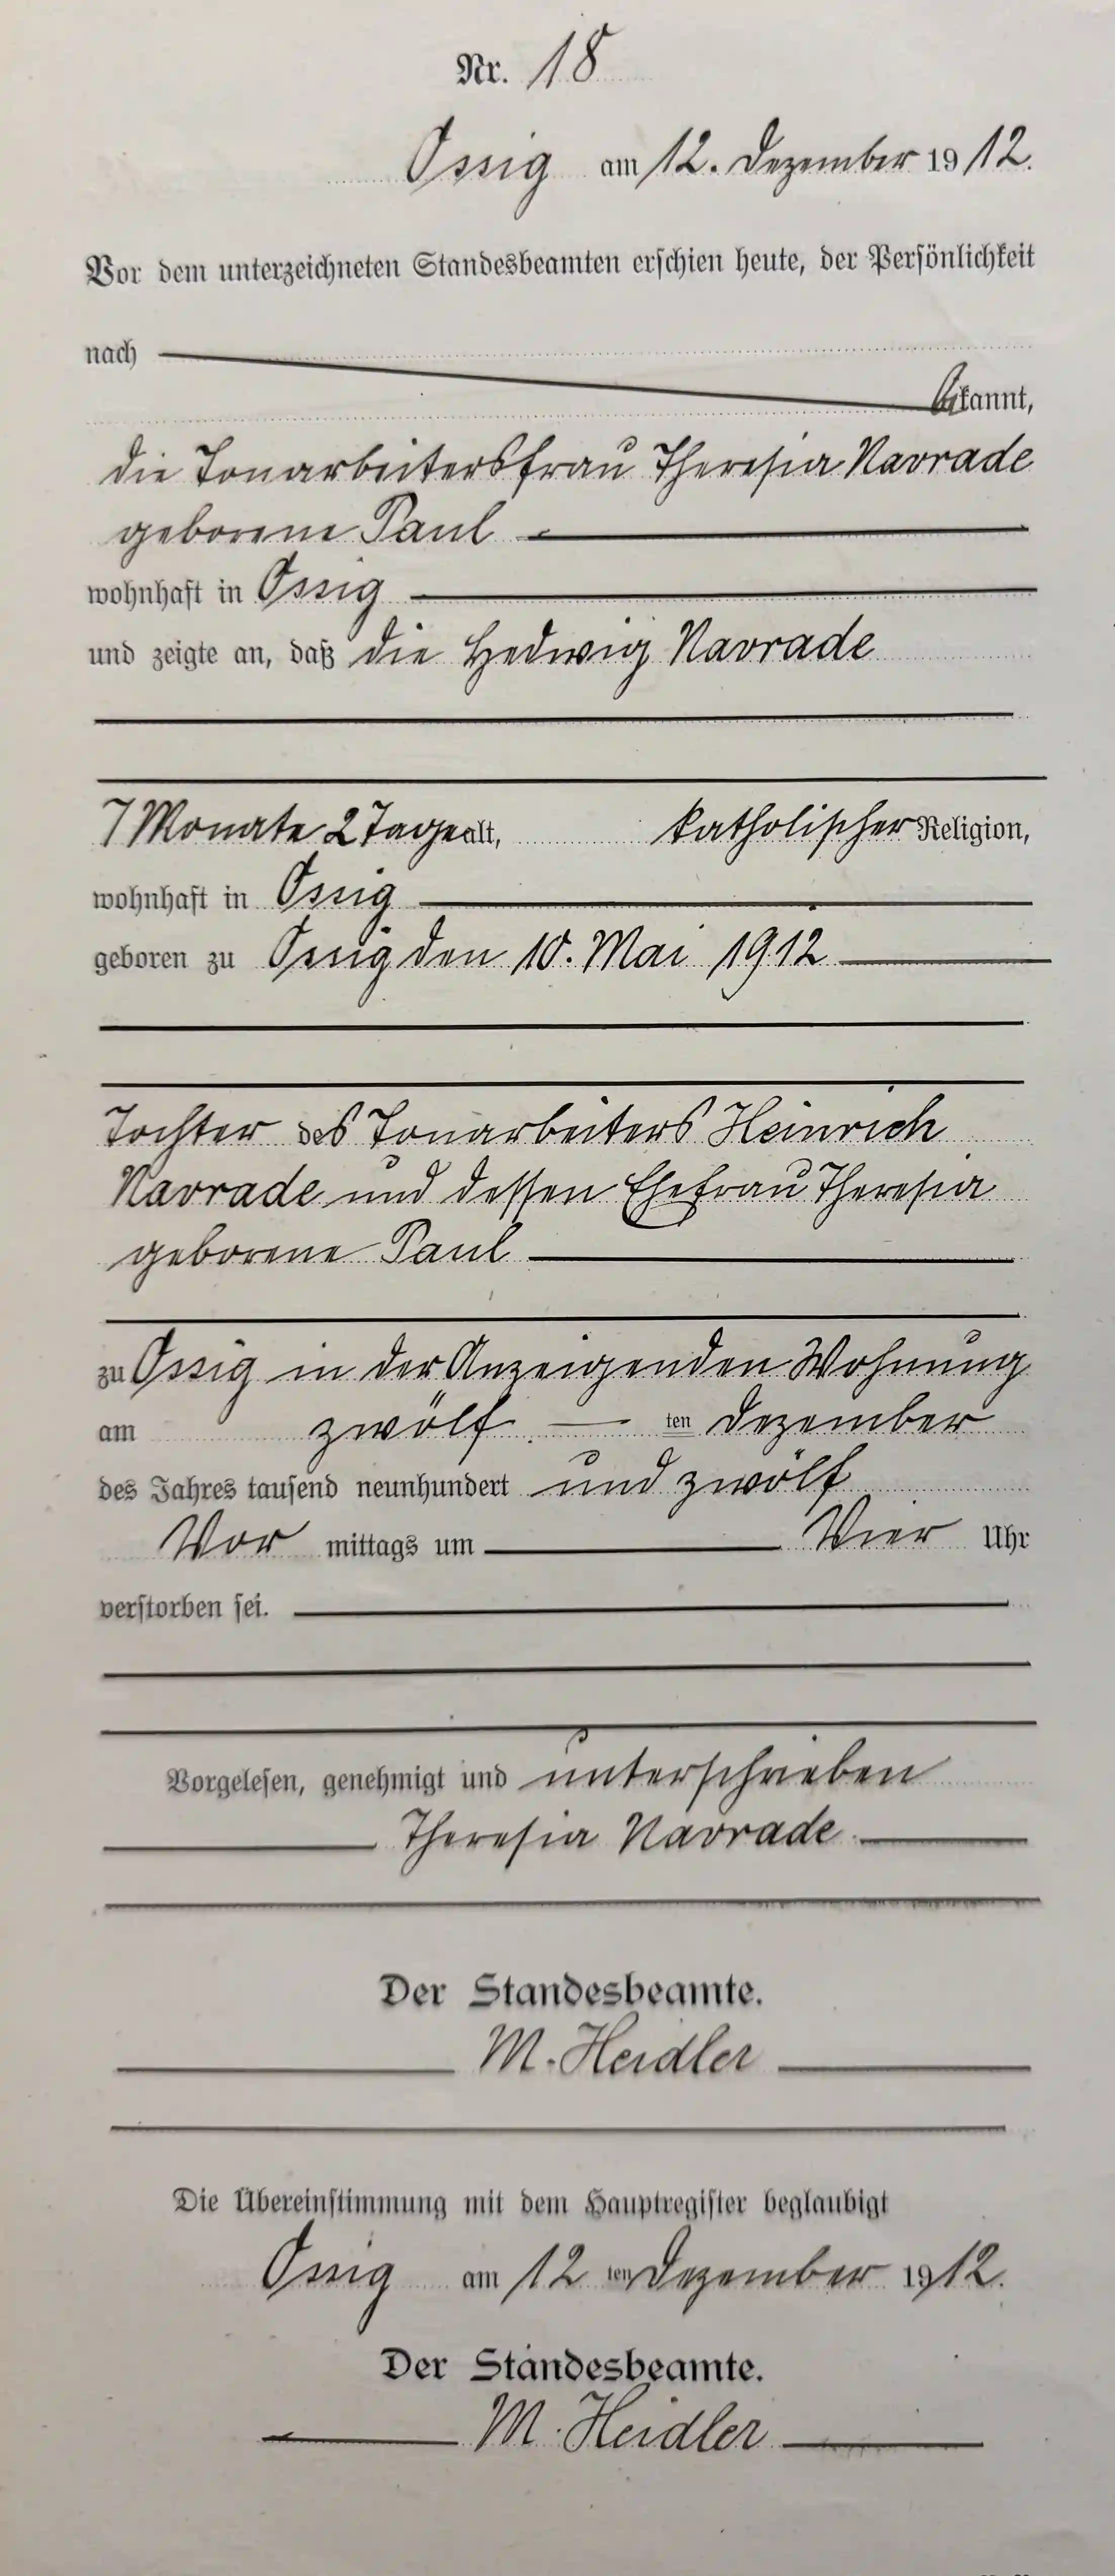 Nr. 18
Ossig am 12. Dezember 1912.
Vor dem unterzeichneten Standesbeamten erschien heute, der Persönlichkeit
nach
bekannt,
die Tonarbeitersfrau Theresia Navrade
geborene Paul
wohnhaft in Ossig
und zeigte an, daß die Hedwig Navrade
7 Monate 2 Tage alt, katholischer Religion,
wohnhaft in Ossig
geboren zu Ossig den 10. Mai 1912
Tochter des Tonarbeiters Heinrich
Navrade und dessen Ehefrau Theresia
geborene Paul
zu Ossig in der Anzeigenden Wohnung
am zwölf ten Dezember
des Jahres tausend neunhundert und zwölf
Vor mittags um Vier Uhr
verstorben sei.
Vorgelesen, genehmigt und unterschrieben
Theresia Navrade
Der Standesbeamte.
M. Heidler
Die Übereinstimmung mit dem Hauptregister beglaubigt
Ossig am 12 ten Dezember 1912.
Der Standesbeamte.
M. Heidler